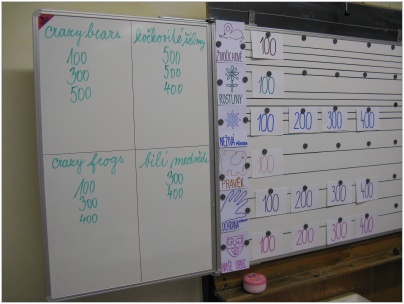 crazy bears
100
300
500
kočkovité šelmy
500
500
400
crazy frogs
100
300
400
bílí medvědi
300
400
ŽIVOČICHOVÉ
100
ROSTLINY
100
NEŽIVÁ PŘÍRODA
100 200 300 400
PRAVĚK
100
OCHRANA
100 200 300 400
NAŠE OBEC
100 200 300 400